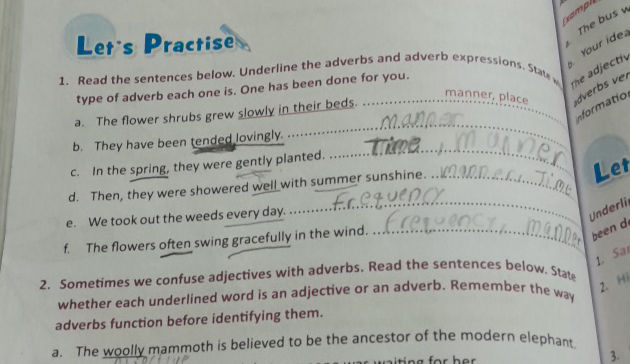 Let's Practise
1. Read the sentences below. Underline the adverbs and adverb expressions. State
type of adverb each one is. One has been done for you.
a. The flower shrubs grew slowly in their beds. manner, place
b. They have been tended lovingly. manner
c. In the spring, they were gently planted. Time, manner
d. Then, they were showered well with summer sunshine. manner, Time
e. We took out the weeds every day. frequency
f. The flowers often swing gracefully in the wind. frequency, manner
2. Sometimes we confuse adjectives with adverbs. Read the sentences below. State
whether each underlined word is an adjective or an adverb. Remember the way
adverbs function before identifying them.
a. The woolly mammoth is believed to be the ancestor of the modern elephant.
waiting for her
a. The bus w
b. Your idea
The adjectiv
adverbs ver
informatio
Let
Underli
been d
1. Sa
2. Hi
3.